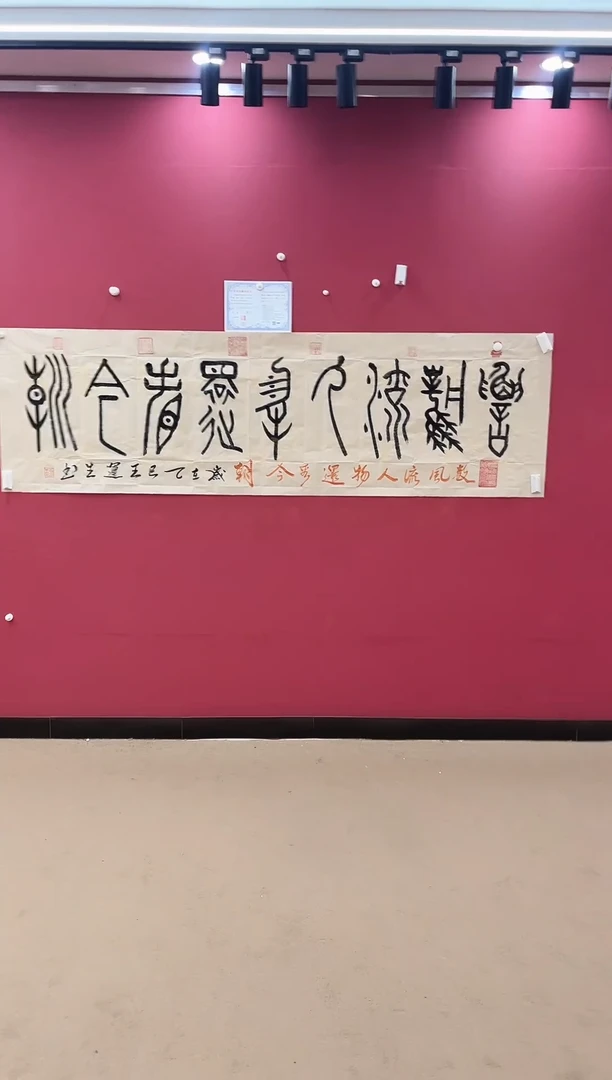 數風流人物還看今朝
数風流人物還看今朝 歲在乙巳王運生书